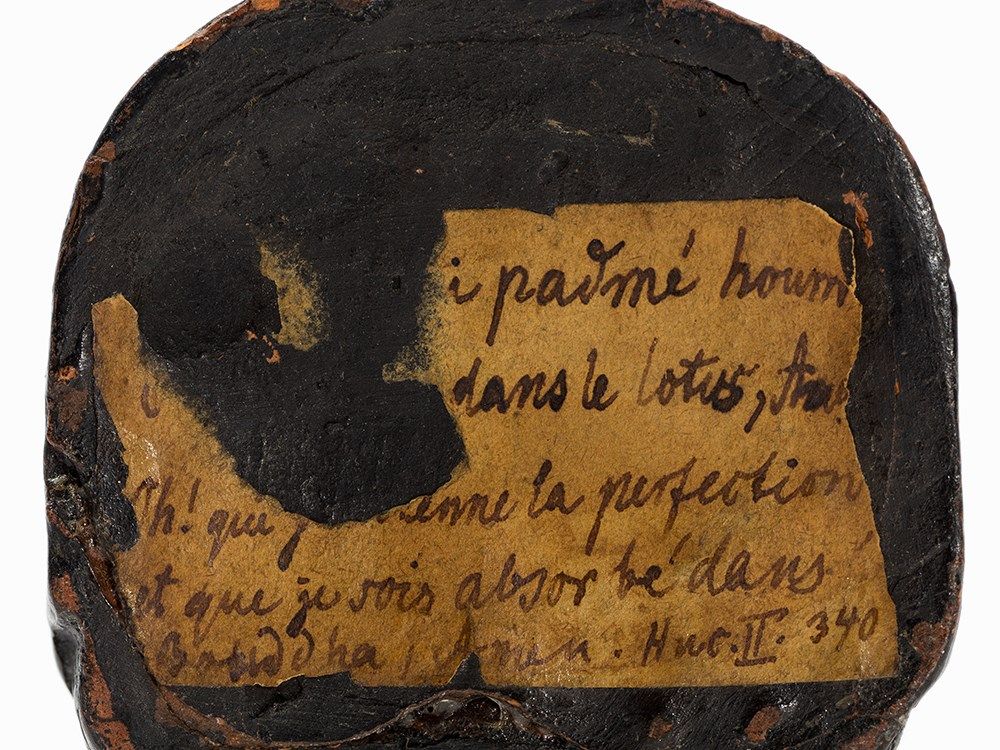 i padmé houm
dans le lotus, Am
Oh! que j'obtienne la perfection
et que je sois absorbé dans
Bouddha, Amen. Huc. II. 340